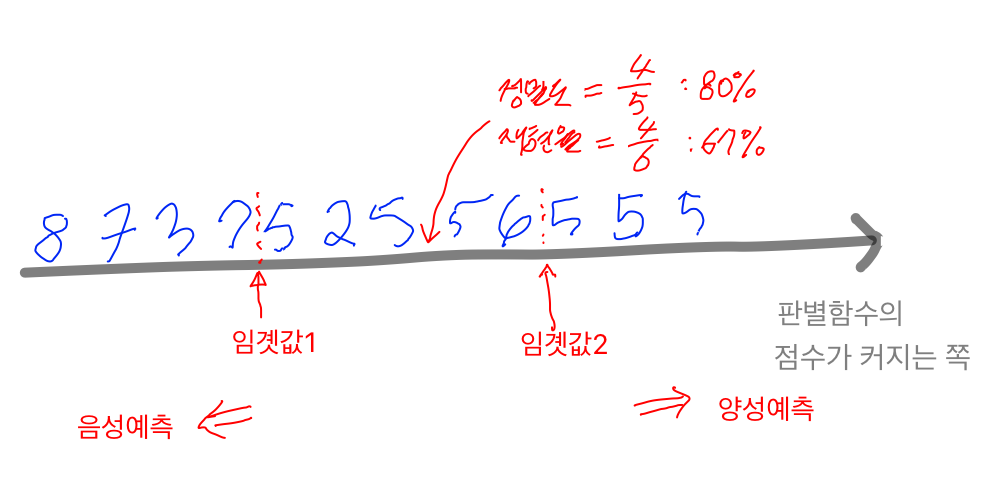 정밀도 = 4/5 : 80%
재현율 = 4/6 : 67%
8 7 3 7 5 2 5 5 6 5 5 5
임곗값1
임곗값2
판별함수의
점수가 커지는 쪽
음성예측
양성예측